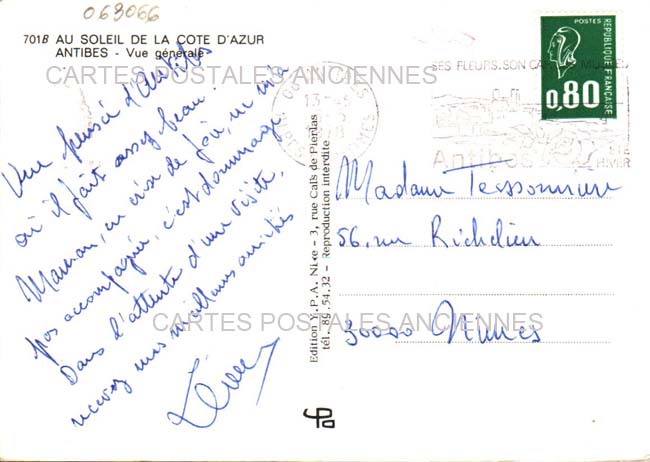 063066
701B AU SOLEIL DE LA COTE D'AZUR
ANTIBES - Vue générale
CARTES POSTALES ANCIENNES
Une pensée d'Antibes
où il fait assez beau.
Maman, en crise de foie, ne m'a
pas accompagnée, c'est dommage
Dans l'attente d'une visite,
recevez mes meilleures amitiés
Edition Y.P.A. Nice - 3, rue Caïs de Pierlas
tél. 89.54.32 - Reproduction interdite
POSTES
REPUBLIQUE FRANÇAISE
0,80
SES FLEURS.SON
13-
Antibes
HIVER
Madame Teissonniere
56, rue Richelieu
30000 Nimes
CARTES POSTALES ANCIENNES